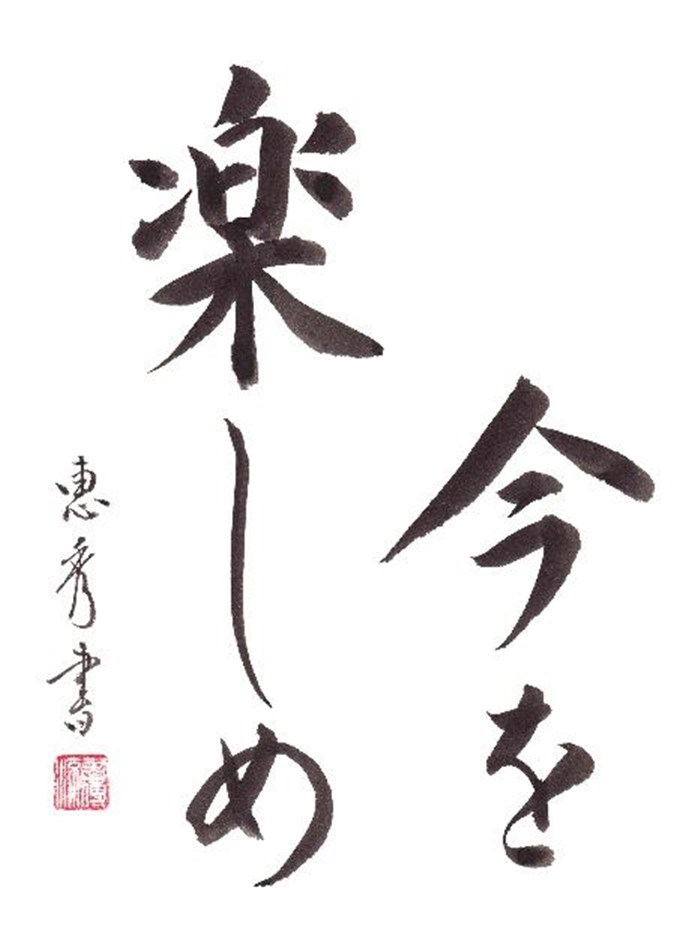 今を
楽しめ
惠秀書